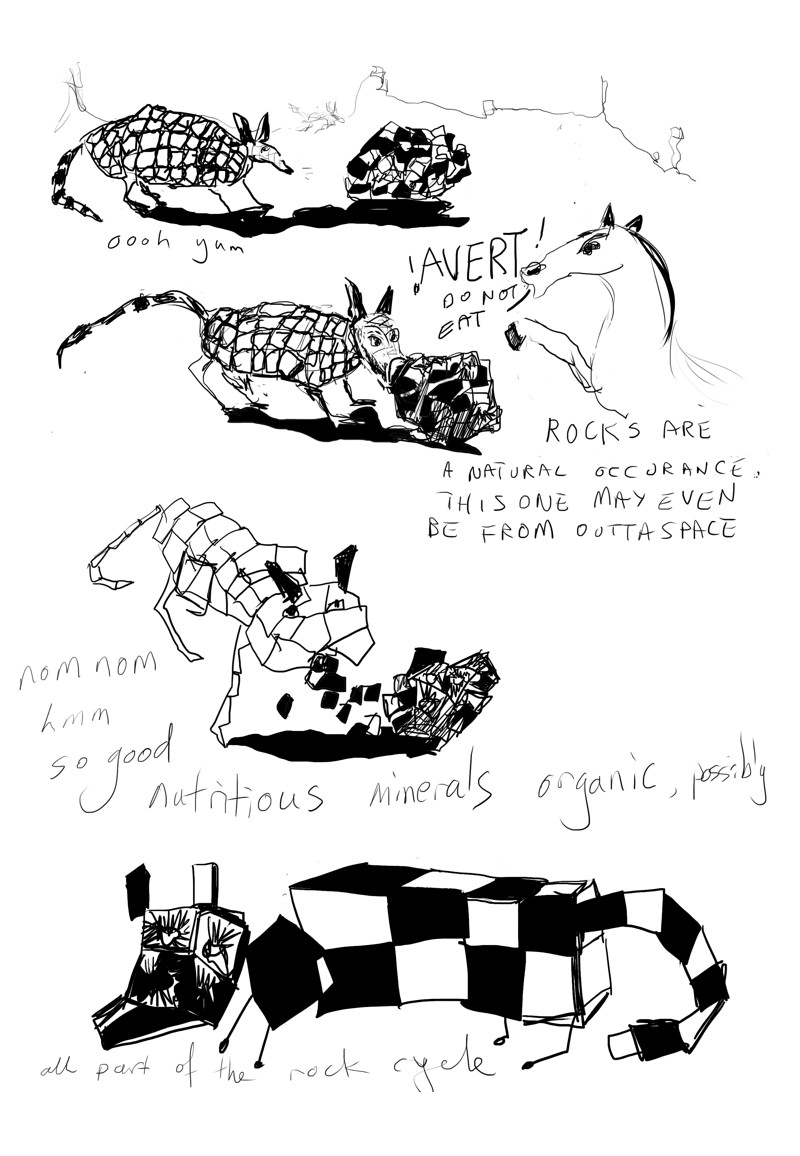 oooh yum
'AVERT!
DO NOT
EAT
ROCKS ARE
A NATURAL OCCURANCE.
THIS ONE MAY EVEN
BE FROM OUTTASPACE
nom nom
hmm
so good
nutritious minerals organic, possibly
all part of the rock cycle